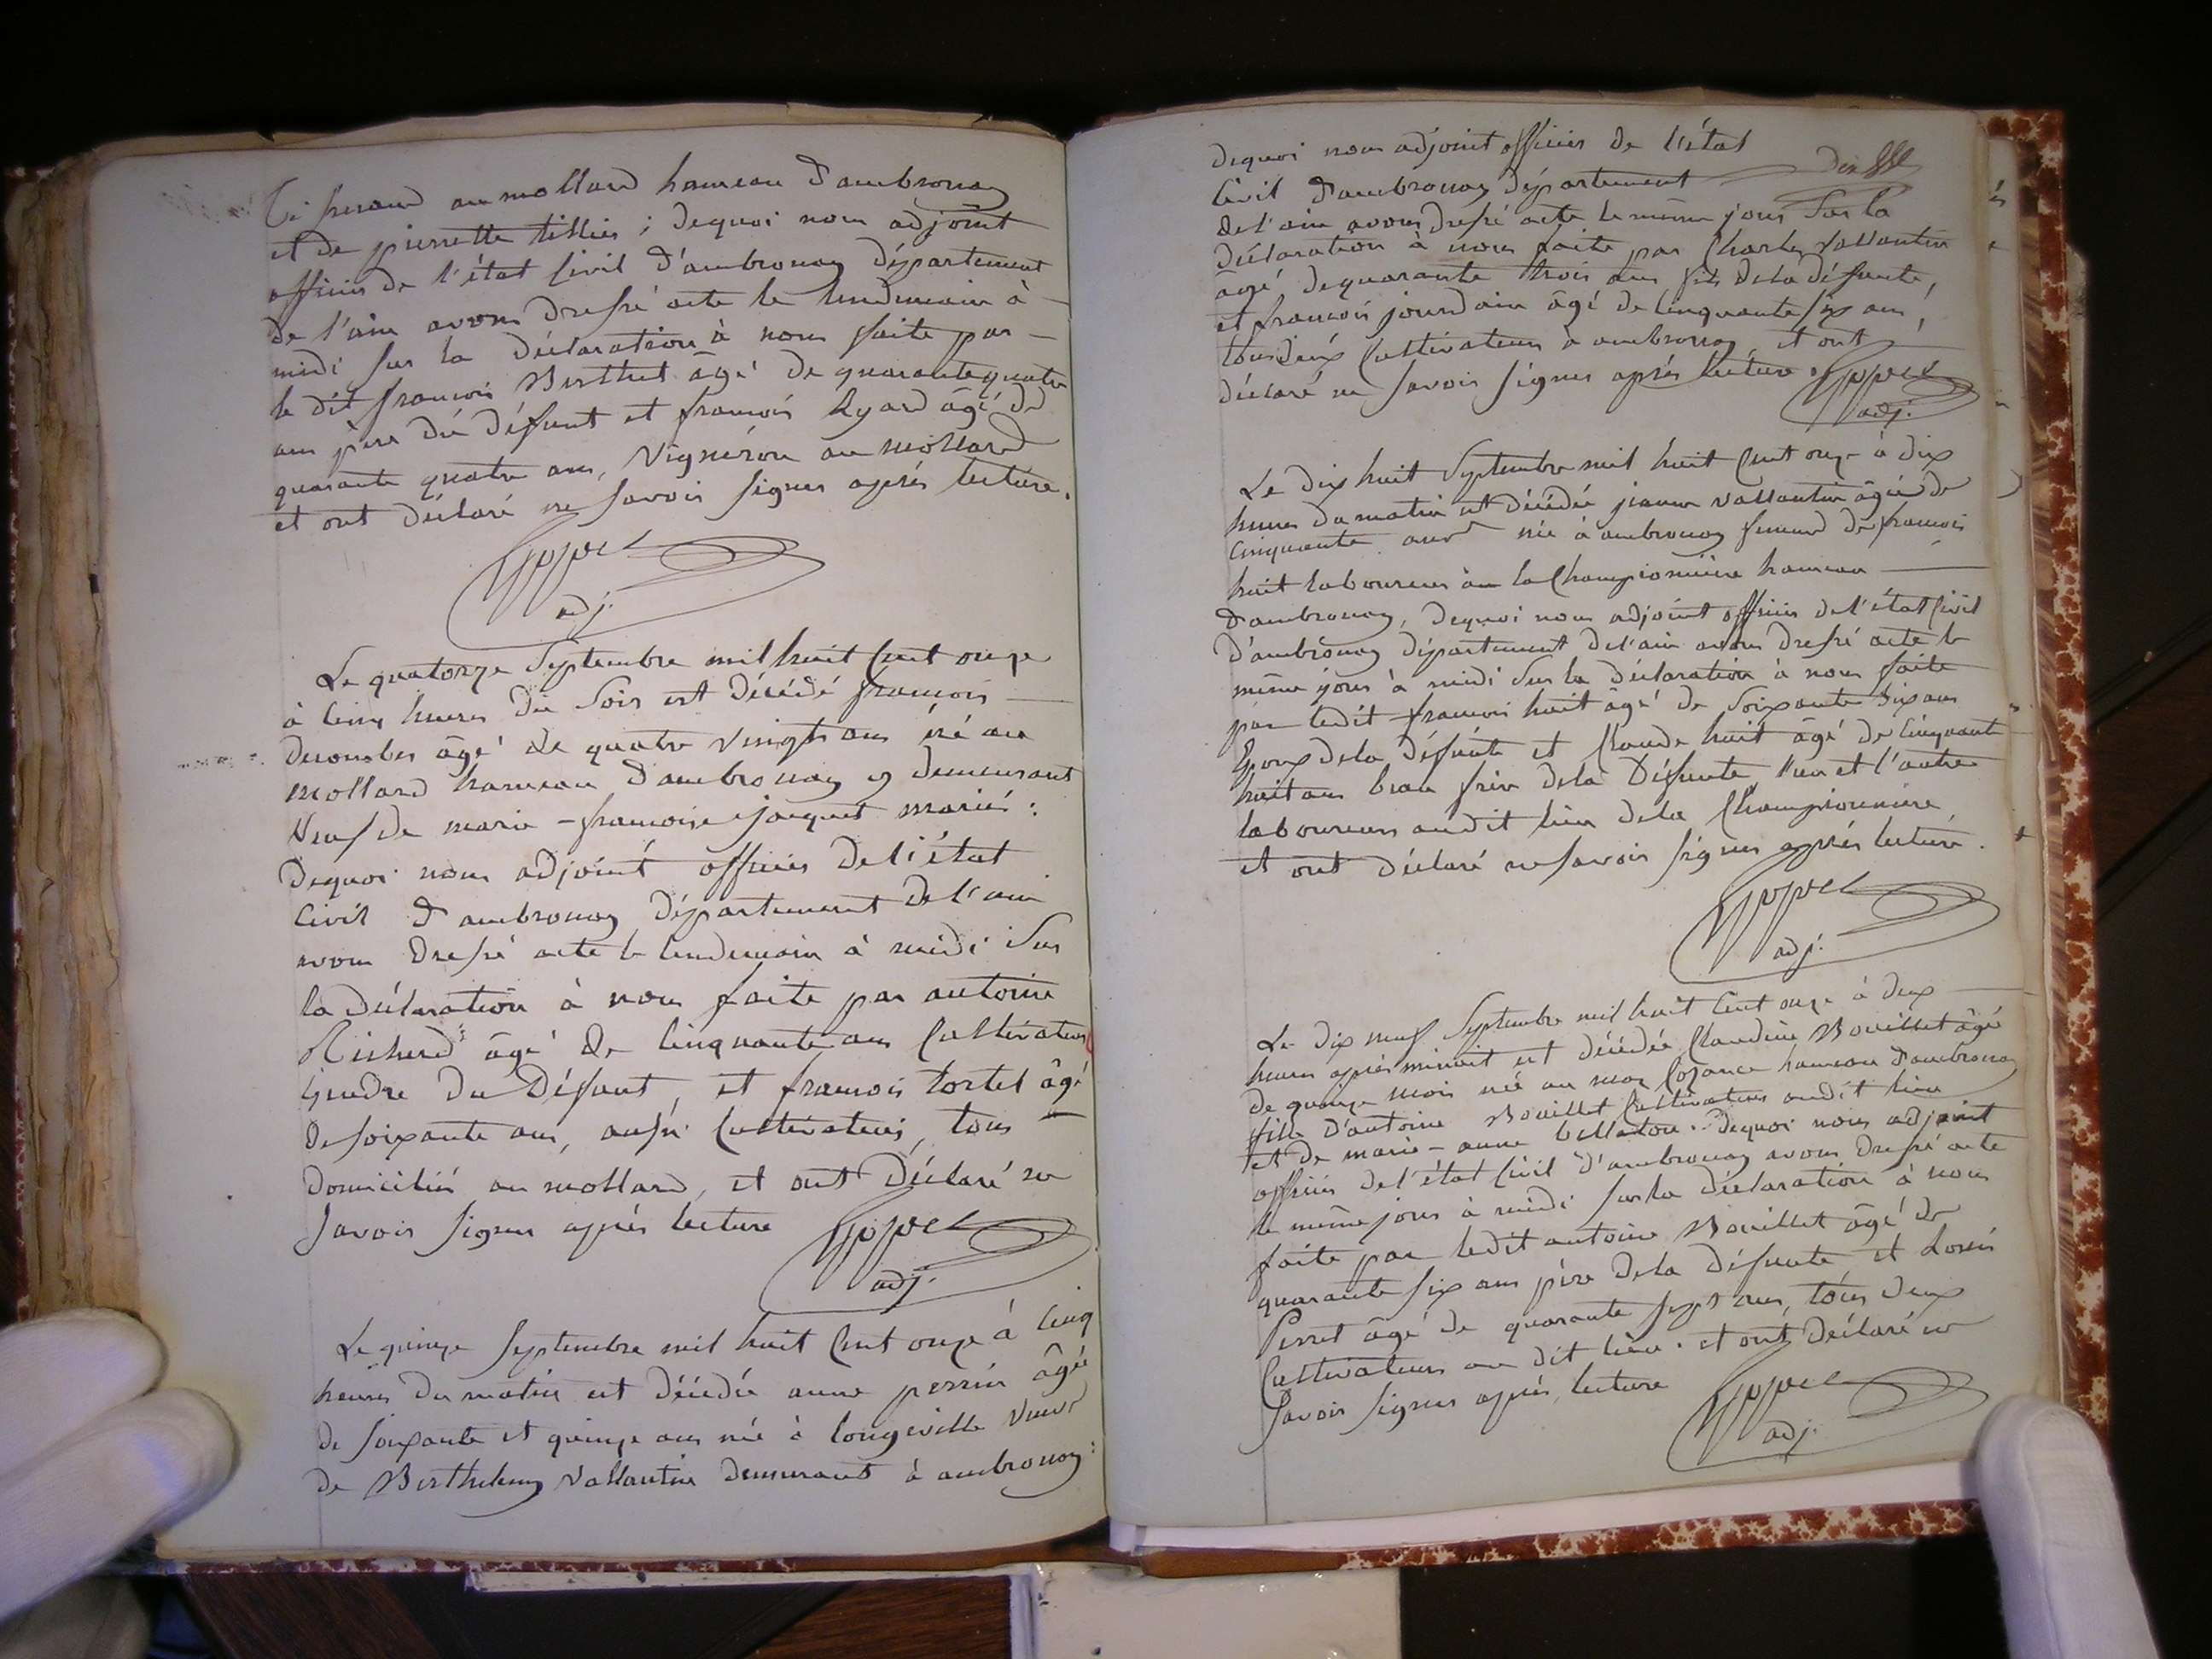 au mollard hameau d'ambronay
et de pierrette tillier ; dequoi nous adjoint
officier de l'état civil d'ambronay département
de l'ain avons dressé acte le lendemain à
midi sur la déclaration à nous faite par
le dit françois Berthet âgé de quarante quatre
ans père du défunt et françois âgé de
quarante quatre ans, vigneron au mollard
et ont déclaré ne savoir signer après lecture.
adj.
Le quatorze Septembre mil huit Cent onze
à cinq heures du Soir est décédé françois
âgé de quatre vingts ans né au
mollard hameau d'ambronay y demeurant
veuf de marie-francoise jacquet mariés :
dequoi nous adjoint officier de l'état
civil d'ambronay département de l'ain
avons dressé acte le lendemain à midi Sur
la déclaration à nous faite par antoine
Richerd âgé de cinquante ans Cultivateur
gendre du défunt, et françois tortel âgé
de soixante ans, aussi Cultivateur, tous
domiciliés au mollard, et ont déclaré ne
savoir signer après lecture
adj.
Le quinze Septembre mil huit Cent onze à cinq
heures du matin est décédée anne perrin âgée
de soixante et quinze ans née à longeville veuve
de Berthelemy vallantin demeurant à ambronay :
dequoi nous adjoint officier de l'état
civil d'ambronay département
de l'ain avons dressé acte le même jour Sur la
déclaration à nous faite par Charles vallantin
âgé de quarante trois ans fils de la défunte,
et francois jourdain âgé de cinquante six ans,
tous deux Cultivateurs à ambronay, et ont
déclaré ne savoir signer après lecture.
adj.
Le dix huit Septembre mil huit Cent onze à dix
heures du matin est décédée jeanne vallantin âgée de
cinquante ans née à ambronay femme de françois
huit laboureur à la Championnière hameau
d'ambronay, dequoi nous adjoint officier de l'état civil
d'ambronay département de l'ain avons dressé acte le
même jour à midi Sur la déclaration à nous faite
par ledit françois huit âgé de Soixante six ans
Epoux de la défunte et Claude huit âgé de Cinquante
huit ans beau frère de la Défunte, l'un et l'autre
laboureurs audit lieu de la Championnière
et ont déclaré ne savoir signer après lecture.
adj.
Le dix neuf Septembre mil huit Cent onze à deux
heures après minuit est décédée Claudine Bouillet âgée
de quinze mois née au hameau d'ambronay
fille d'antoine Bouillet Cultivateur audit lieu
et de marie-anne bellaton. dequoi nous adjoint
officier de l'état Civil d'ambronay avons dressé acte
le même jour à midi sur la déclaration à nous
faite par ledit antoine Bouillet âgé de
quarante six ans père de la défunte, et Louis
Perret âgé de quarante sept ans, tous deux
Cultivateurs au dit lieu. et ont déclaré ne
Savoir signer après lecture
adj.